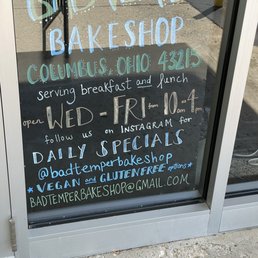 BAD TEMPER
BAKESHOP
COLUMBUS, OHIO 43215
serving breakfast and lunch
open WED - FRI from 10am-4pm
follow us on INSTAGRAM for
DAILY SPECIALS
@badtemperbakeshop
*VEGAN and GLUTEN FREE options*
BADTEMPERBAKESHOP@GMAIL.COM